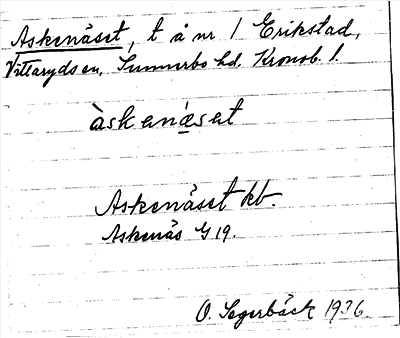 Askenäset, t å nr 1 Erikstad,
Vittaryds sn, Sunnerbo hd, Kronob. l.
àskenä̀sət
Askenäset kb.
Askenäs G 19.
O. Segerbäck 1936